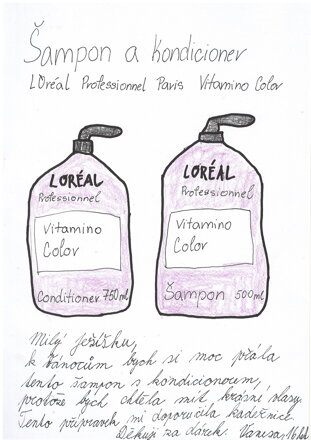 Šampon a kondicioner
LOréal Professionnel Paris Vitamino Color
LORÉAL
Professionnel
Vitamino
Color
Conditioner 750ml
LORÉAL
Professionnel
Vitamino
Color
Šampon 500ml
Milý Ježíšku,
k Vánocům bych si moc přála
tento šampon s kondicionerem,
protože bych chtěla mít krásné vlasy.
Tento přípravek mi doporučila kadeřnice.
Děkuji za dárek. Vanesa, 16 let